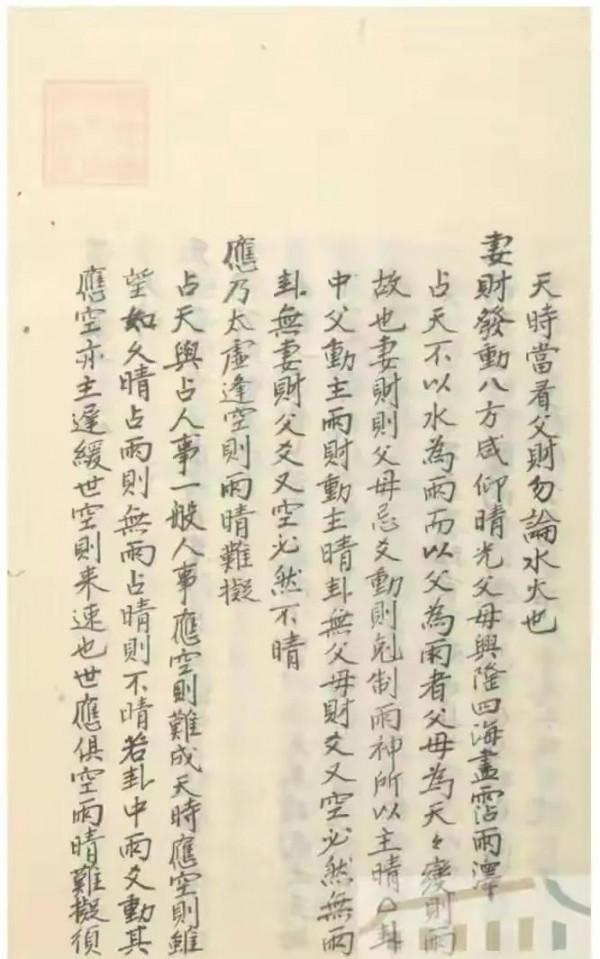 天時當看父財勿論水火也
妻財發動八方咸仰晴光父母興隆四海盡霑雨澤
占天不以水為雨而以父為雨者父母為天々變則雨
故也妻財則父母忌爻動則剋制雨神所以主晴△卦
中父動主雨財動主晴卦無父母財爻又空必然無雨
卦無妻財父爻又空必然不晴
應乃太虛逢空則雨晴難擬
占天與占人事一般人事應空則難成天時應空則雖
望如久晴占雨則無雨占晴則不晴若卦中雨爻動其
應空亦主遲緩世空則来速也世應俱空雨晴難擬須